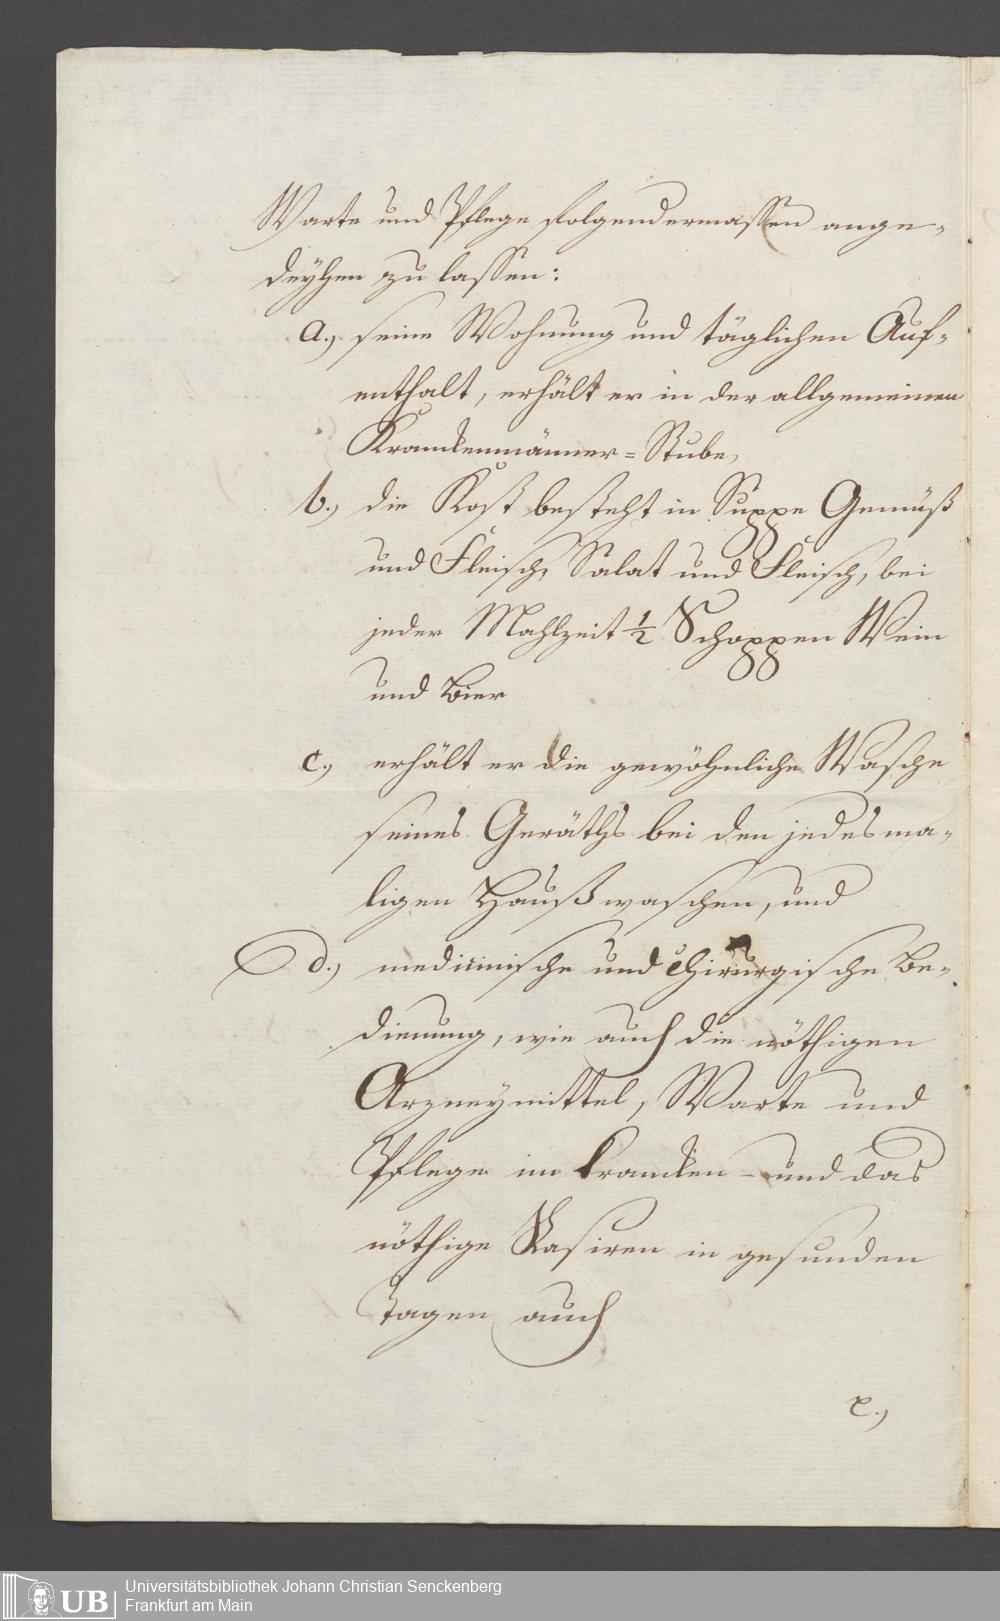 Warte und Pflege folgendermassen ange-
deyhen zu lassen:
a.) seine Wohnung und täglichen Auf-
enthalt, erhält er in der allgemeinen
Krankenmänner=Stube,
b.) die Kost besteht in Suppe Gemüß
und Fleisch, Salat und Fleisch, bei
jeder Mahlzeit ½ Schoppen Wein
und Bier
c.) erhält er die gewöhnliche Wasche
seines Geräths bei den jedesma-
ligen Haußwaschen, und
d.) medicinische und chirurgische Be-
dienung, wie auch die nöthigen
Arzneymittel, Warte und
Pflege in kranken- und das
nöthige Rasiren in gesunden
Tagen auch
e.)
Universitätsbibliothek Johann Christian Senckenberg
Frankfurt am Main
UB